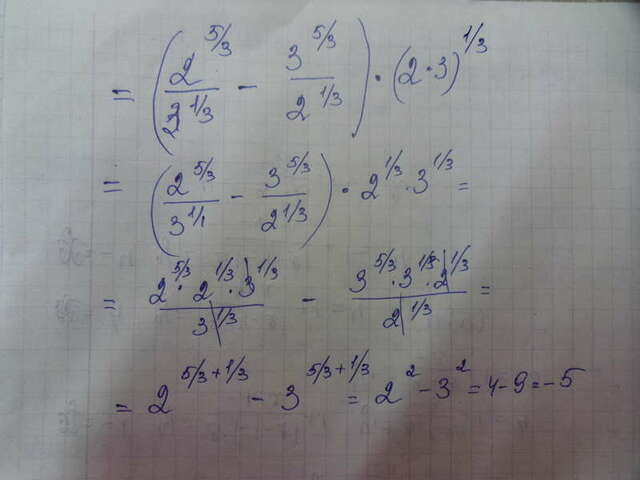 = (2^5/3 / 3^1/3 - 3^5/3 / 2^1/3) · (2·3)^1/3
= (2^5/3 / 3^1/1 - 3^5/3 / 2^1/3) · 2^1/3 · 3^1/3 =
= 2^5/3 · 2^1/3 · 3^1/3 / 3^1/3 - 3^5/3 · 3^1/3 · 2^1/3 / 2^1/3 =
= 2^5/3+1/3 - 3^5/3+1/3 = 2^2 - 3^2 = 4-9=-5